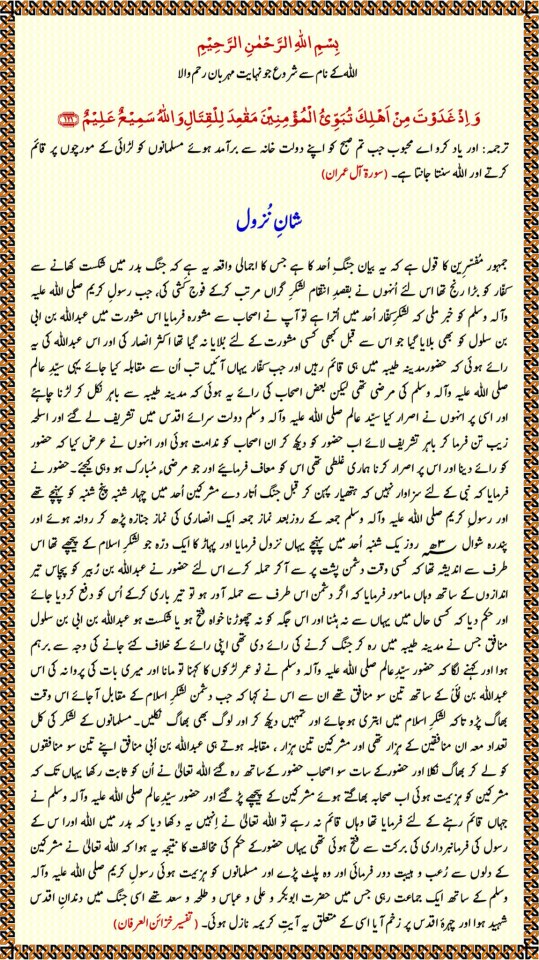 بِسْمِ اللهِ الرَّحْمٰنِ الرَّحِیْمِ
اللہ کے نام سے شروع جو نہایت مہربان رحم والا
وَ اِذْ غَدَوْتَ مِنْ اَهْلِكَ تُبَوِّئُ الْمُؤْمِنِیْنَ مَقَاعِدَ لِلْقِتَالِ وَاللهُ سَمِیْعٌ عَلِیْمٌ ﴿۱۲۱﴾
ترجمہ: اور یاد کرو اے محبوب جب تم صبح کو اپنے دولت خانہ سے برآمد ہوئے مسلمانوں کو لڑائی کے مورچوں پر قائم
کرتے اور اللہ سنتا جانتا ہے۔ (سورۃ آل عمران)
شانِ نُزول
جمہور مُفسّرین کا قول ہے کہ یہ بیان جنگِ اُحد کا ہے جس کا اجمالی واقعہ یہ ہے کہ جنگ بدر میں شکست کھانے سے
کفّار کو بڑا رنج تھا اس لئے اُنہوں نے بقصدِ انتقام لشکرِ گراں مرتب کرکے فوج کَشی کی، جب رسولِ کریم صلی اللہ علیہ
وآلہ وسلم کو خبر ملی کہ لشکرِ کفّار اُحد میں اُترا ہے تو آپ نے اصحاب سے مشورہ فرمایا اس مشورت میں عبداللہ بن ابی
بن سلول کو بھی بلایا گیا جو اس سے قبل کبھی کسی مشورت کے لئے بُلایا نہ گیا تھا اکثر انصار کی اور اس عبداللہ کی یہ
رائے ہوئی کہ حضور مدینہ طیبہ میں ہی قائم رہیں اور جب کفّار یہاں آئیں تب اُن سے مقابلہ کیا جائے یہی سیّدِ عالم
صلی اللہ علیہ وآلہ وسلم کی مرضی تھی لیکن بعض اصحاب کی رائے یہ ہوئی کہ مدینہ طیبہ سے باہر نکل کر لڑنا چاہئے
اور اسی پر انہوں نے اصرار کیا سیّد عالم صلی اللہ علیہ وآلہ وسلم دولت سرائے اقدس میں تشریف لے گئے اور اسلحہ
زیب تن فرما کر باہر تشریف لائے اب حضور کو دیکھ کر ان اصحاب کو ندامت ہوئی اور انہوں نے عرض کیا کہ حضور
کو رائے دینا اور اس پر اصرار کرنا ہماری غلطی تھی اس کو معاف فرمایئے اور جو مرضیء مُبارک ہو وہی کیجئے۔ حضور نے
فرمایا کہ نبی کے لئے سزاوار نہیں کہ ہتھیار پہن کر قبل جنگ اُتار دے مشرکین اُحد میں چہار شنبہ پنج شنبہ کو پہنچے تھے
اور رسولِ کریم صلی اللہ علیہ وآلہ وسلم جمعہ کے روز بعد نماز جمعہ ایک انصاری کی نماز جنازہ پڑھ کر روانہ ہوئے اور
پندرہ شوال ۳ھ روز یک شنبہ اُحد میں پہنچے یہاں نزول فرمایا اور پہاڑ کا ایک درّہ جو لشکرِ اسلام کے پیچھے تھا اس
طرف سے اندیشہ تھا کہ کسی وقت دشمن پشت پر سے آکر حملہ کرے اس لئے حضور نے عبداللہ بن زُبیر کو پچاس تیر
اندازوں کے ساتھ وہاں مامور فرمایا کہ اگر دشمن اس طرف سے حملہ آور ہو تو تیر باری کرکے اُس کو دفع کردیا جائے
اور حکم دیا کہ کسی حال میں یہاں سے نہ ہٹنا اور اس جگہ کو نہ چھوڑنا خواہ فتح ہو یا شکست ہو عبداللہ بن ابی بن سلول
منافق جس نے مدینہ طیبہ میں رہ کر جنگ کرنے کی رائے دی تھی اپنی رائے کے خلاف کئے جانے کی وجہ سے برہم
ہوا اور کہنے لگا کہ حضور سیّدِ عالم صلی اللہ علیہ وآلہ وسلم نے نو عمر لڑکوں کا کہنا تو مانا اور میری بات کی پروانہ کی اس
عبداللہ بن اُبَیّ کے ساتھ تین سو منافق تھے ان سے اس نے کہا کہ جب دشمن لشکرِ اسلام کے مقابل آجائے اس وقت
بھاگ پڑو تاکہ لشکرِ اسلام میں ابتری ہوجائے اور تمہیں دیکھ کر اور لوگ بھی بھاگ نکلیں۔ مسلمانوں کے لشکر کی کل
تعداد معہ ان منافقین کے ہزار تھی اور مشرکین تین ہزار، مقابلہ ہوتے ہی عبداللہ بن اُبی منافق اپنے تین سو منافقوں
کو لے کر بھاگ نکلا اور حضور کے سات سو اصحاب حضور کے ساتھ رہ گئے اللہ تعالیٰ نے اُن کو ثابت رکھا یہاں تک کہ
مشرکین کو ہزیمت ہوئی اب صحابہ بھاگتے ہوئے مشرکین کے پیچھے پڑ گئے اور حضور سیّدِ عالم صلی اللہ علیہ وآلہ وسلم نے
جہاں قائم رہنے کے لئے فرمایا تھا وہاں قائم نہ رہے تو اللہ تعالیٰ نے اِنہیں یہ دکھا دیا کہ بدر میں اللہ اور اس کے
رسول کی فرمانبرداری کی برکت سے فتح ہوئی تھی یہاں حضور کے حکم کی مخالفت کا نتیجہ یہ ہوا کہ اللہ تعالیٰ نے مشرکین
کے دلوں سے رُعب و ہیبت دور فرمائی اور وہ پلٹ پڑے اور مسلمانوں کو ہزیمت ہوئی رسولِ کریم صلی اللہ علیہ وآلہ
وسلم کے ساتھ ایک جماعت رہی جس میں حضرت ابوبکر و علی و عباس و طلحہ و سعد تھے اسی جنگ میں دندانِ اقدس
شہید ہوا اور چہرۂ اقدس پر زخم آیا اسی کے متعلق یہ آیتِ کریمہ نازل ہوئی۔ (تفسیر خزائن العرفان)